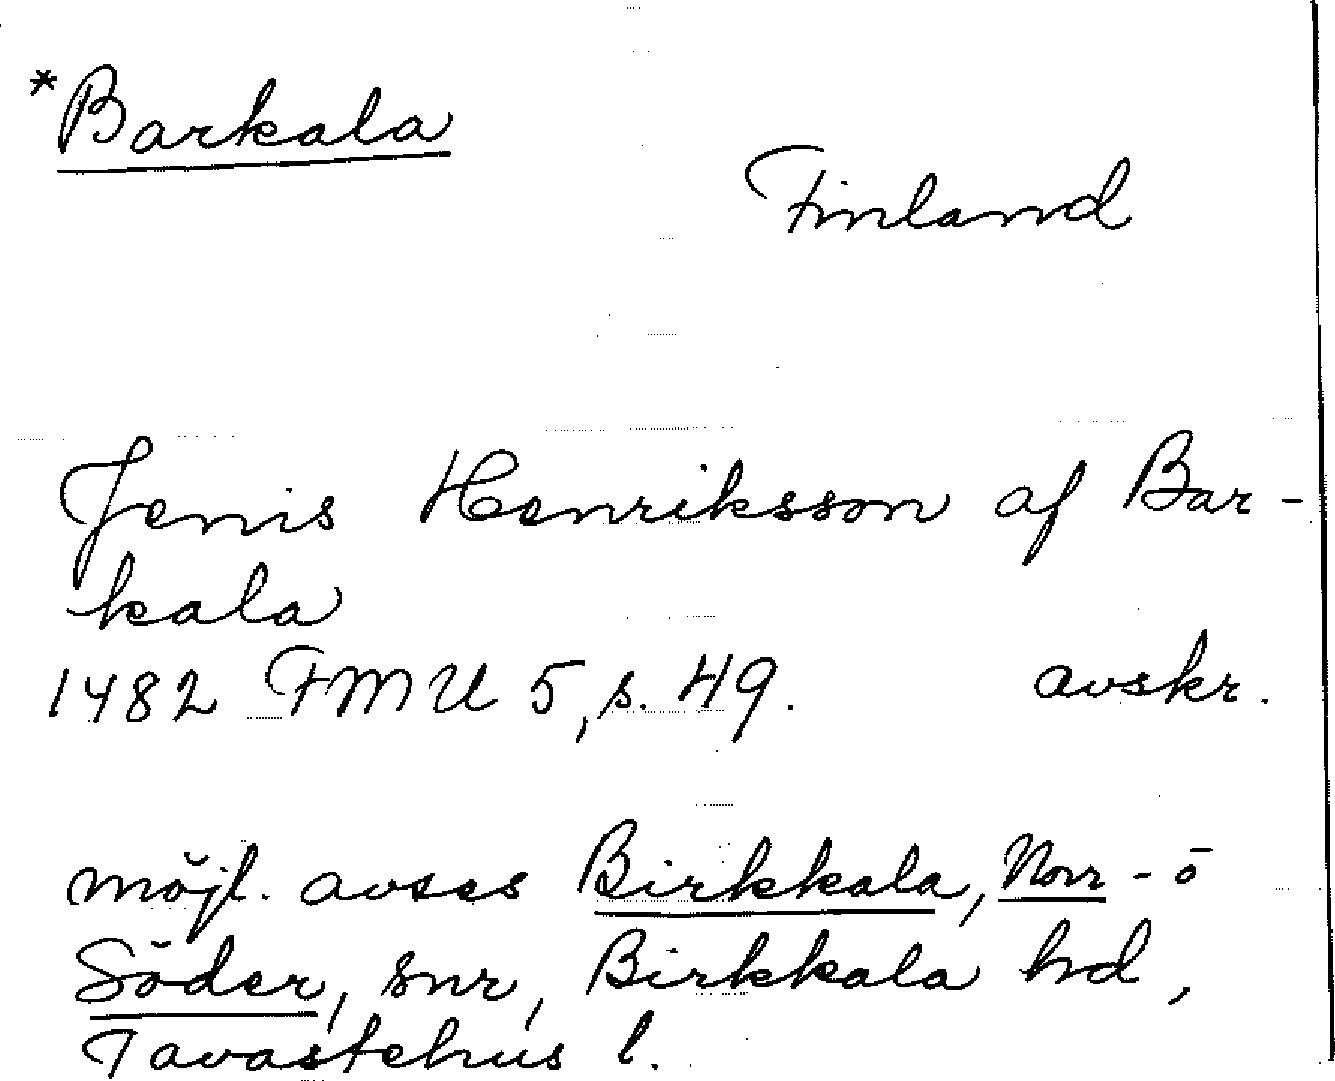 *Barkala
Finland
Jenis Henriksson af Bar-
kala
1482 FMU 5, s. 49. avskr.
möjl. avses Birkkala, Norr- o
Söder, snr, Birkkala hd,
Tavastehus l.